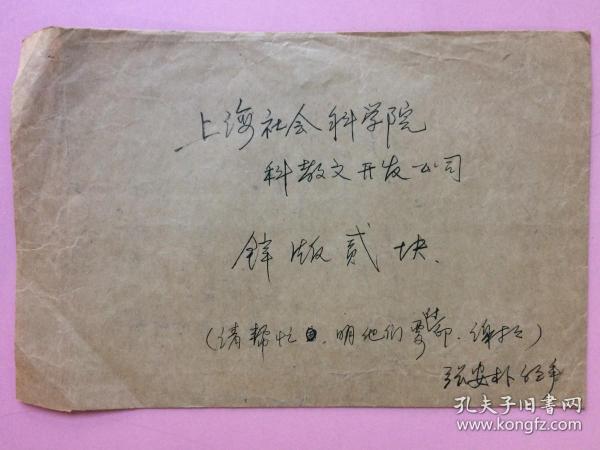 上海社会科学院
科教文开发公司
锌版贰块.
(请帮忙,明他们要印.谢谢)
张安朴经手
孔夫子旧书网
www.kongfz.com